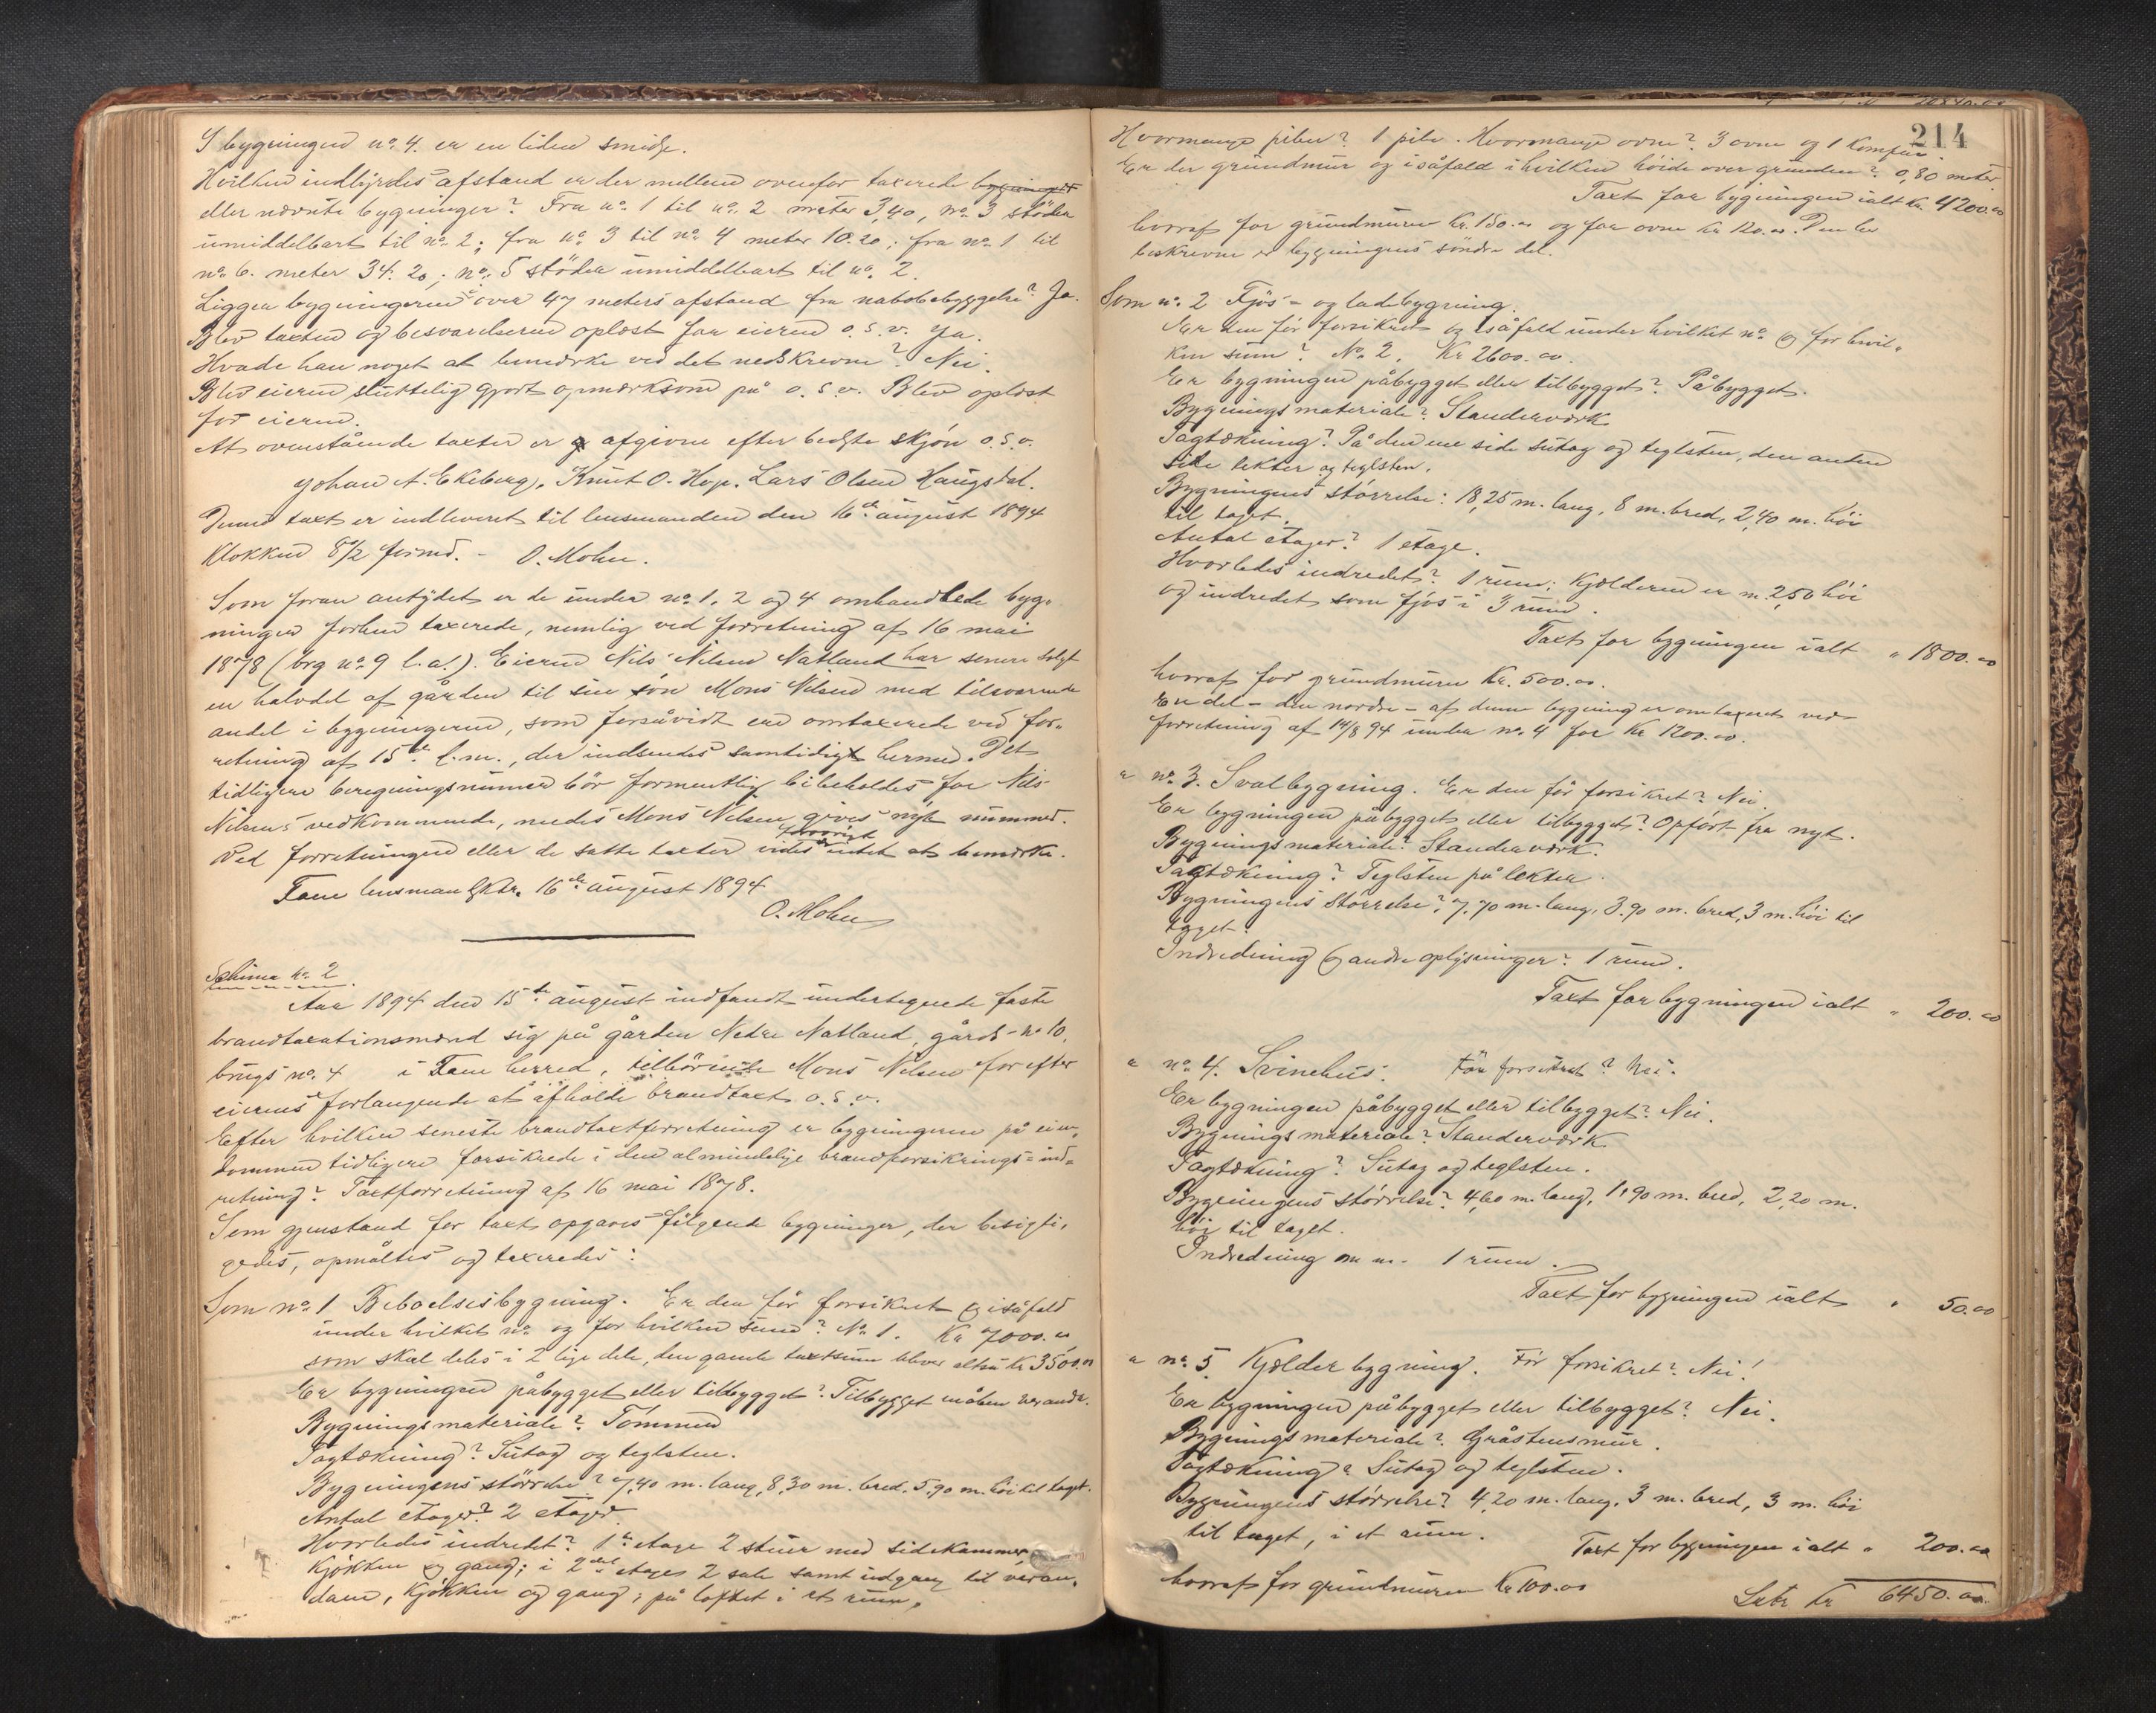 I bygningen no. 4. er en liden smidje.
Hvilken indbyrdes afstand er der mellem ovenfor taxerede bygninger
eller nævnte bygninger? Fra no. 1 til no. 2 meter 3,40, no. 3 støder
umiddelbart til no. 2; fra no. 3 til no. 4 meter 10.20; fra no. 1 til
no. 6. meter 34.20; no. 5 støder umiddelbart til no. 2.
Ligger bygningerne over 47 meters afstand fra nabobebyggelse? Ja.
Blev taxten og besvarelserne oplæst for eieren o. s. v. Ja.
Havde han noget at bemærke ved det nedskrevne? Nei.
Blev eieren sluttelig gjort opmærksom på o. s. v. Blev oplæst
for eieren.
At ovenstående taxter er afgivne efter bedste skjøn o. s. v.
Johan A. Ekeberg. Knut O. Hop. Lars Olsen Haugsdal.
Denne taxt er indleveret til lensmanden den 16de august 1894
klokken 8 1/2 formd. - O. Mohn.
Som foran antydet er de under no. 1, 2 og 4 omhandlede byg-
ninger forhen taxerede, nemlig ved forretning af 16 mai
1878 (brg no. 9 l. a.). Eieren Nils Nilsen Natland har senere solgt
en halvdel af gården til sin søn Mons Nilsen med tilsvarende
andel i bygningerne, som forsåvidt ere omtaxerede ved for-
retning af 15de d. m., der indsendes samtidigt hermed. Det
tidligere beregningsnummer bør formentlig bibeholdes for Nils
Nilsens vedkommende, medens Mons Nilsen gives nyt nummer.
Ved forretningen eller de satte taxter vides forøvrigt intet at bemærke.
Fane lensmandsktr. 16de august 1894
O. Mohn
Schima no. 2.
Aar 1894 den 15de august indfandt undertegnede faste
brandtaxationsmænd sig på gården Nedre Natland, gårds-no 10,
brugs no. 4 i Fane herred, tilhørende Mons Nilsen for efter
eierens forlangende at afholde brandtaxt o. s. v.
Efter hvilken seneste brandtaxtforretning er bygningerne på eien-
dommen tidligere forsikrede i den almindelige brandforsikrings-ind-
retning? Taxtforretning af 16 mai 1878.
Som gjenstand for taxt opgaves følgende bygninger, der besigti-
gedes, opmåltes og taxeredes:
Som no. 1 Beboelsesbygning. Er den før forsikret og isåfald
under hvilket no. og for hvilken sum? No. 1. Kr 7000.00
som skal deles i 2 lige dele, den gamle taxtsum bliver altså Kr 3500.00
Er bygningen påbygget eller tilbygget? Tilbygget en åben veranda.
Bygningsmateriale? Tømmer
Tagtækning? Sutag og teglsten.
Bygningens størrelse? 7,40 m. lang, 8,30 m. bred, 5,90 m. høi til taget.
Antal etager? 2 etager.
Hvorledes indredet? 1ste etage 2 stuer med sidekammer,
kjøkken og gang; i 2den etage 2 sale samt udgang til veran-
daen, kjøkken og gang; på loftet i et rum.
214
Hvormange piber? 1 pibe. Hvormange ovne? 3 ovne og 1 komfur
Er der grundmur og isåfald i hvilken høide over grunden? 0,80 meter.
Taxt for bygningen ialt Kr. 4200.00
hvoraf for grundmuren Kr. 150.00 og for ovne Kr 120.00. Den her
beskrevne er bygningens søndre del.
Som no. 2 Fjøs- og ladebygning.
Er den før forsikret og isåfald under hvilket no. og for hvil-
ken sum? No. 2. Kr 2600.00.
Er bygningen påbygget eller tilbygget? Påbygget.
Bygningsmateriale? Standerværk
Tagtækning? På den ene side sutag og teglsten, den anden
side lekter og teglsten.
Bygningens størrelse: 18,25 m. lang, 8 m. bred, 2,40 m. høi
til taget.
Antal etager? 1 etage.
Hvorledes indredet? 1 rum; Kjælderen er m. 2,50 høi
og indredet som fjøs i 3 rum.
Taxt for bygningen ialt " 1800.00
hvoraf for grundmuren Kr. 500.00.
En del - den nordre - af denne bygning er omtaxeret ved
forretning af 14/8 94 under no. 4 for Kr 1200.00.
" no. 3. Svalbygning. Er den før forsikret? Nei.
Er bygningen påbygget eller tilbygget? Opført fra nyt.
Bygningsmateriale? Standerværk.
Tagtækning? Teglsten på lekter.
Bygningens størrelse? 7,70 m. lang, 3.90 m. bred, 3 m. høi til
taget.
Indredning og andre oplysninger? 1 rum.
Taxt for bygningen ialt " 200.00
" no. 4. Svinehus. Før forsikret? Nei.
Er bygningen påbygget eller tilbygget? Nei.
Bygningsmateriale? Standerværk
Tagtækning? Sutag og teglsten.
Bygningens størrelse? 4,60 m. lang, 1,90 m. bred, 2,20 m.
høi til taget.
Indredning m. m. 1 rum.
Taxt for bygningen ialt " 50.00
" no. 5 Kjælderbygning. Før forsikret? Nei!
Er bygningen påbygget eller tilbygget? Nei.
Bygningsmateriale? Gråstensmur.
Tagtækning? Sutag og teglsten.
Bygningens størrelse? 4,20 m. lang, 3 m. bred, 3 m. høi
til taget, i et rum.
Taxt for bygningen ialt " 200.00
hvoraf for grundmuren Kr 100.00
Kr 6450.00